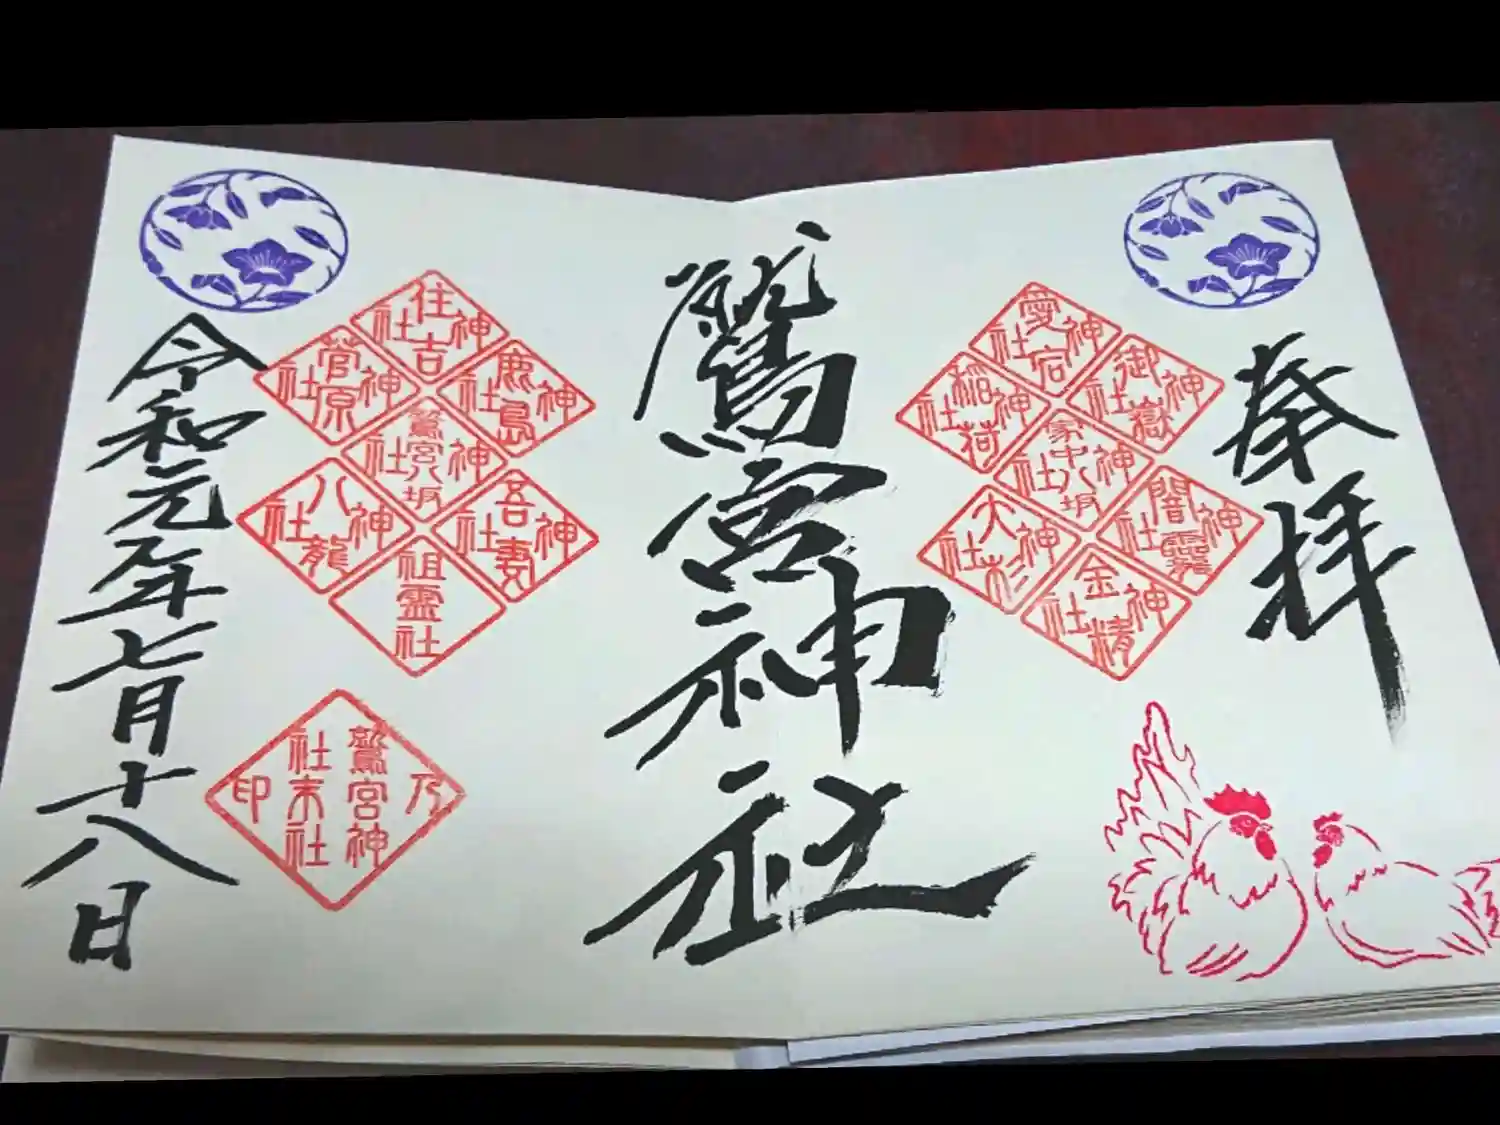 奉拝
鷲宮神社
令和元年七月十八日
愛宕神社
御嶽神社
稲荷神社
家中八坂神社
大杉神社
闇龗神社
金精神社
住吉神社
鹿島神社
菅原神社
鷲宮八坂神社
八龍神社
吾妻神社
祖霊社
鷲宮神
社末社
乃印